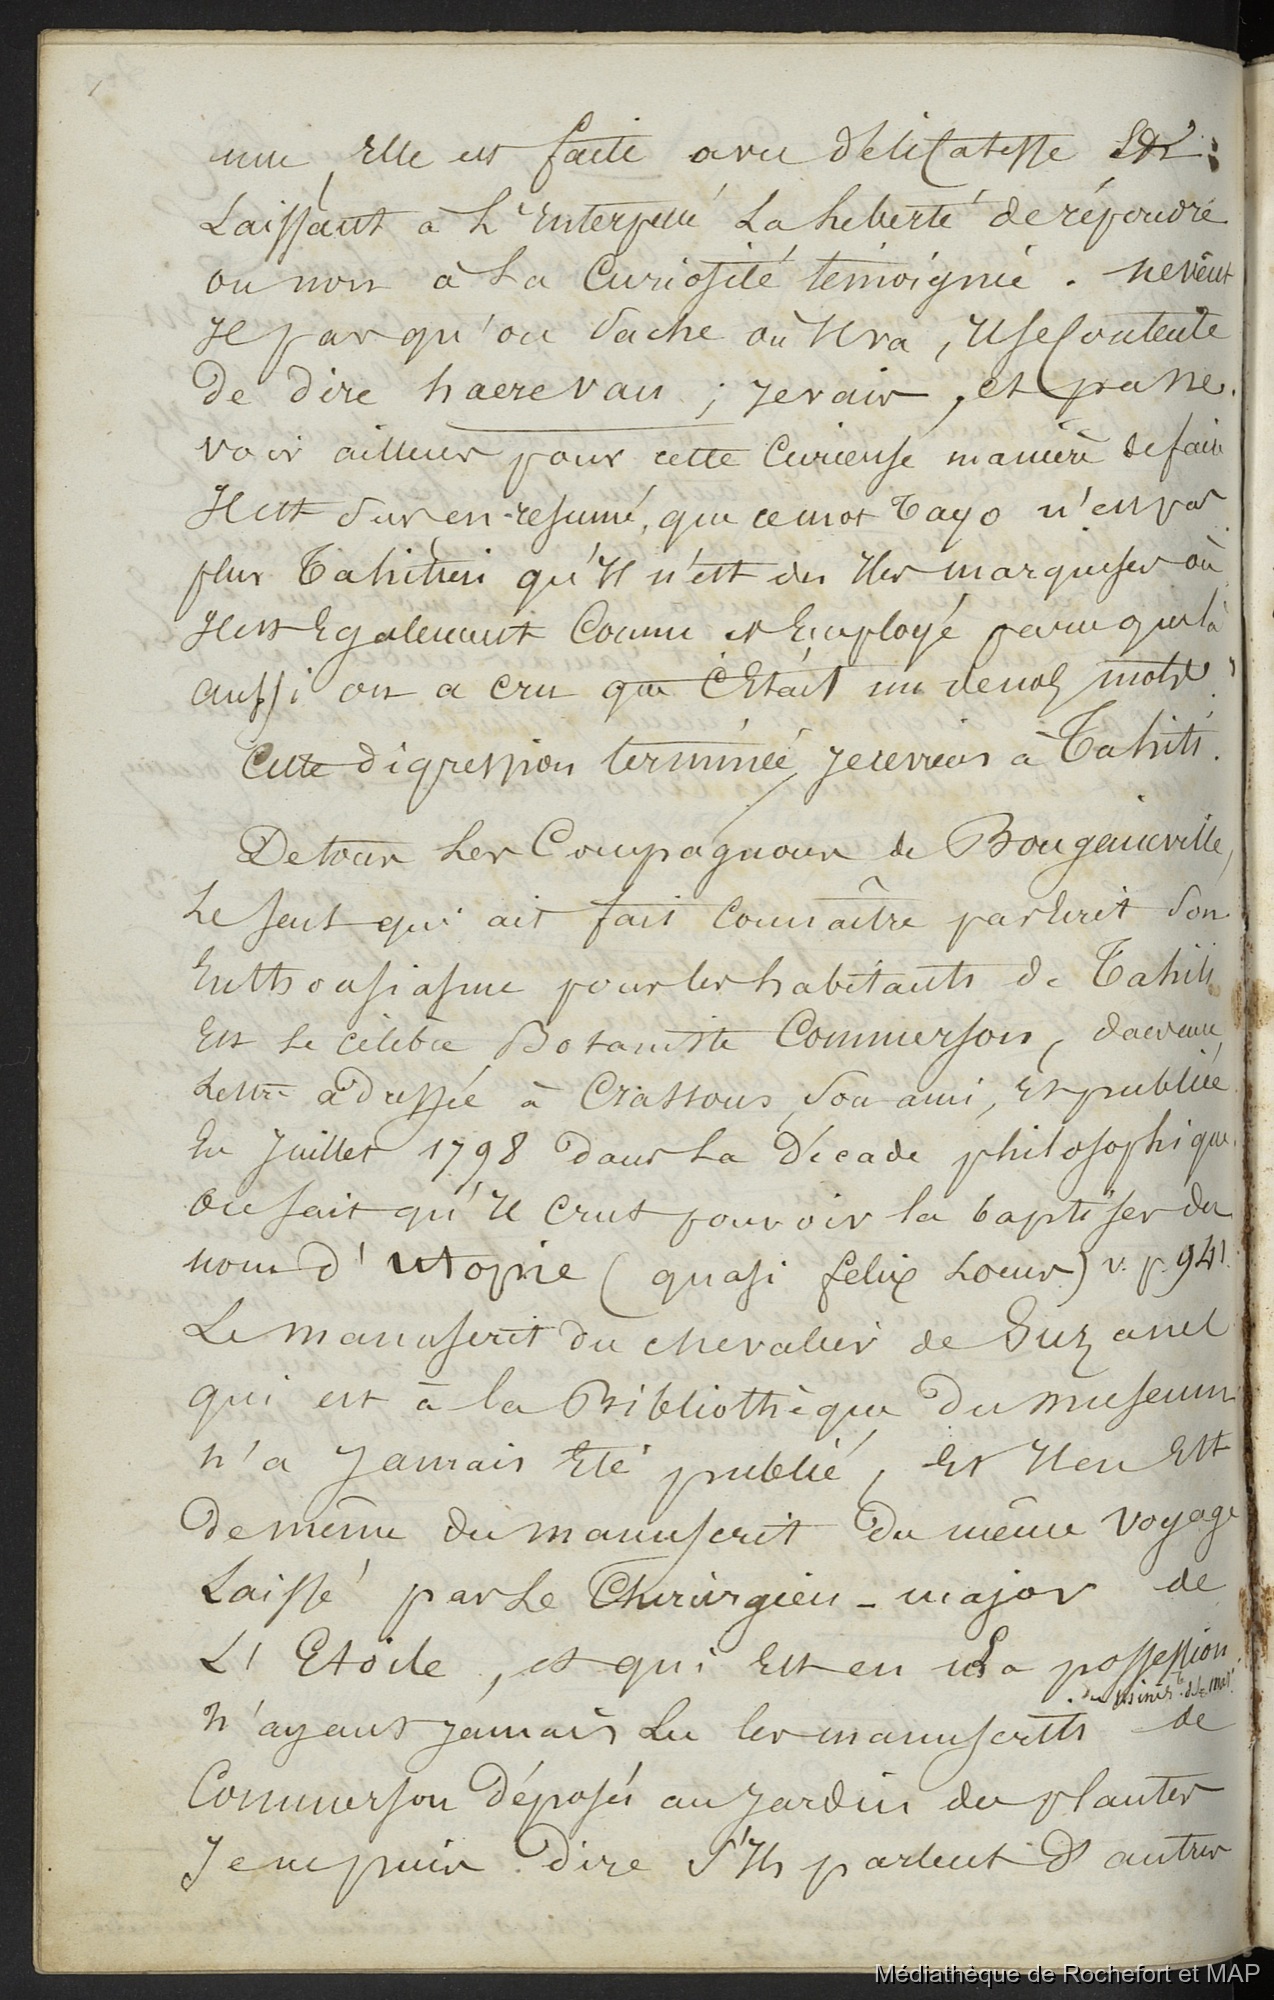 nue, Elle est faite avec délicatesse Et
Laissant à L'Enterpellé La Liberté de répondre
ou non à La Curiosité témoignée. ne veut
Il pas qu'on Sache où Il va, Il se Contente
De dire haere vau ; je vais, et passe.
voir ailleurs pour cette Curieuse manière de faire
Il est sur en-resumé, que ce mot Tayo n'est pas
plus Tahitien qu'Il n'est des Iles marquises où
Il est Egalement Connu et Employé parce que là
aussi on a cru que C'Etait un de nos mots.
Cette digression terminée, je reviens à Tahiti.
De tous Les Compagnons de Bougainville,
Le seul qui ait fait Connaître par Ecrit son
Enthousiasme pour les habitants de Tahiti
Est Le célèbre Botaniste Commerson, dans une
Lettre adressée à Crassous, son ami, Et publiée
En Juillet 1798 dans La Décade philosophique.
On sait qu'Il Crut pouvoir la baptiser du
nom d'Utopie (quasi felix Locus) v. p. 941.
Le manuscrit du chevalier de Suzanet
qui est à la Bibliothèque Du museum
n'a jamais Eté publié, Et Il en Est
De même du manuscrit Du même voyage
Laissé par Le Chirurgien-major de
L'Etoile, et qui Est en La possession
du minis. de la mar.
N'ayant jamais Lu les manuscrits de
Commerson Déposés au jardin des plantes
Je ne puis Dire S'Ils parlent D'autres
Médiathèque de Rochefort et MAP